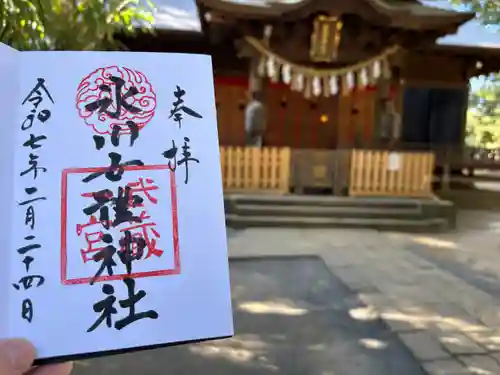 奉拝
氷川女体神社
武蔵
一宮
令和七年二月二十四日